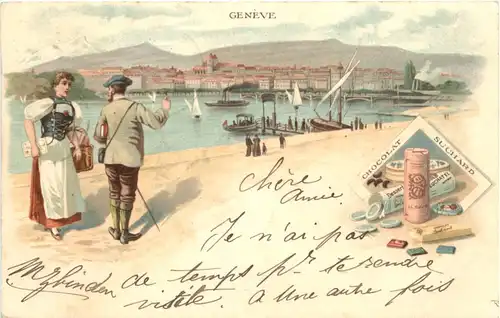 GENÈVE
CHOCOLAT
SUCHARD
Chère
Amie.
Je n'ai pas
de temps pr te rendre
visite. A Une autre fois